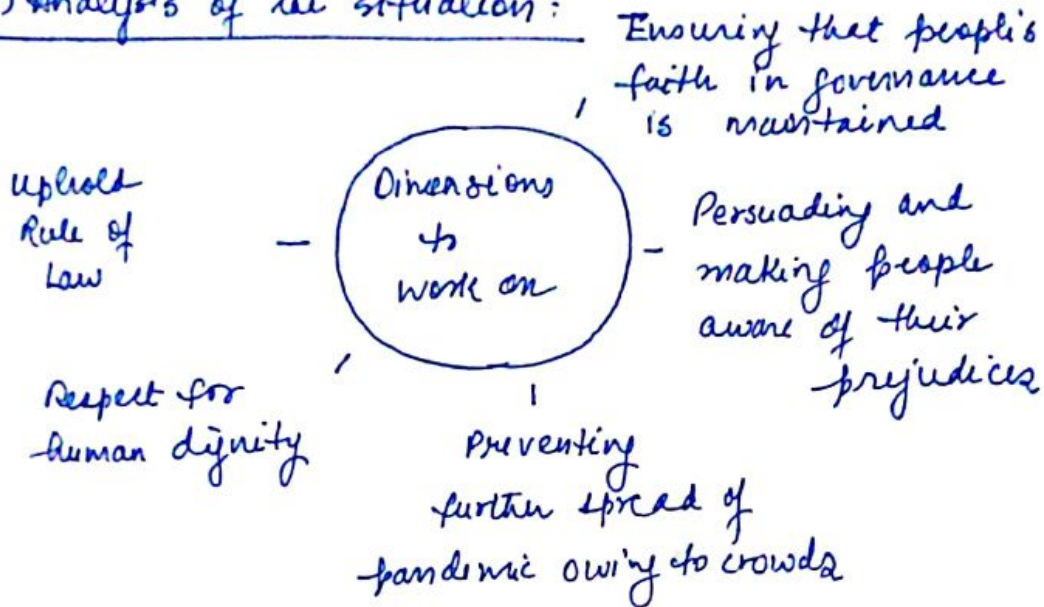 Analysis of the situation:
Ensuring that people's
faith in governance
is maintained
Uphold
Rule of
Law
Dimensions
to
work on
Persuading and
making people
aware of their
prejudices
Respect for
human dignity
Preventing
further spread of
pandemic owing to crowds